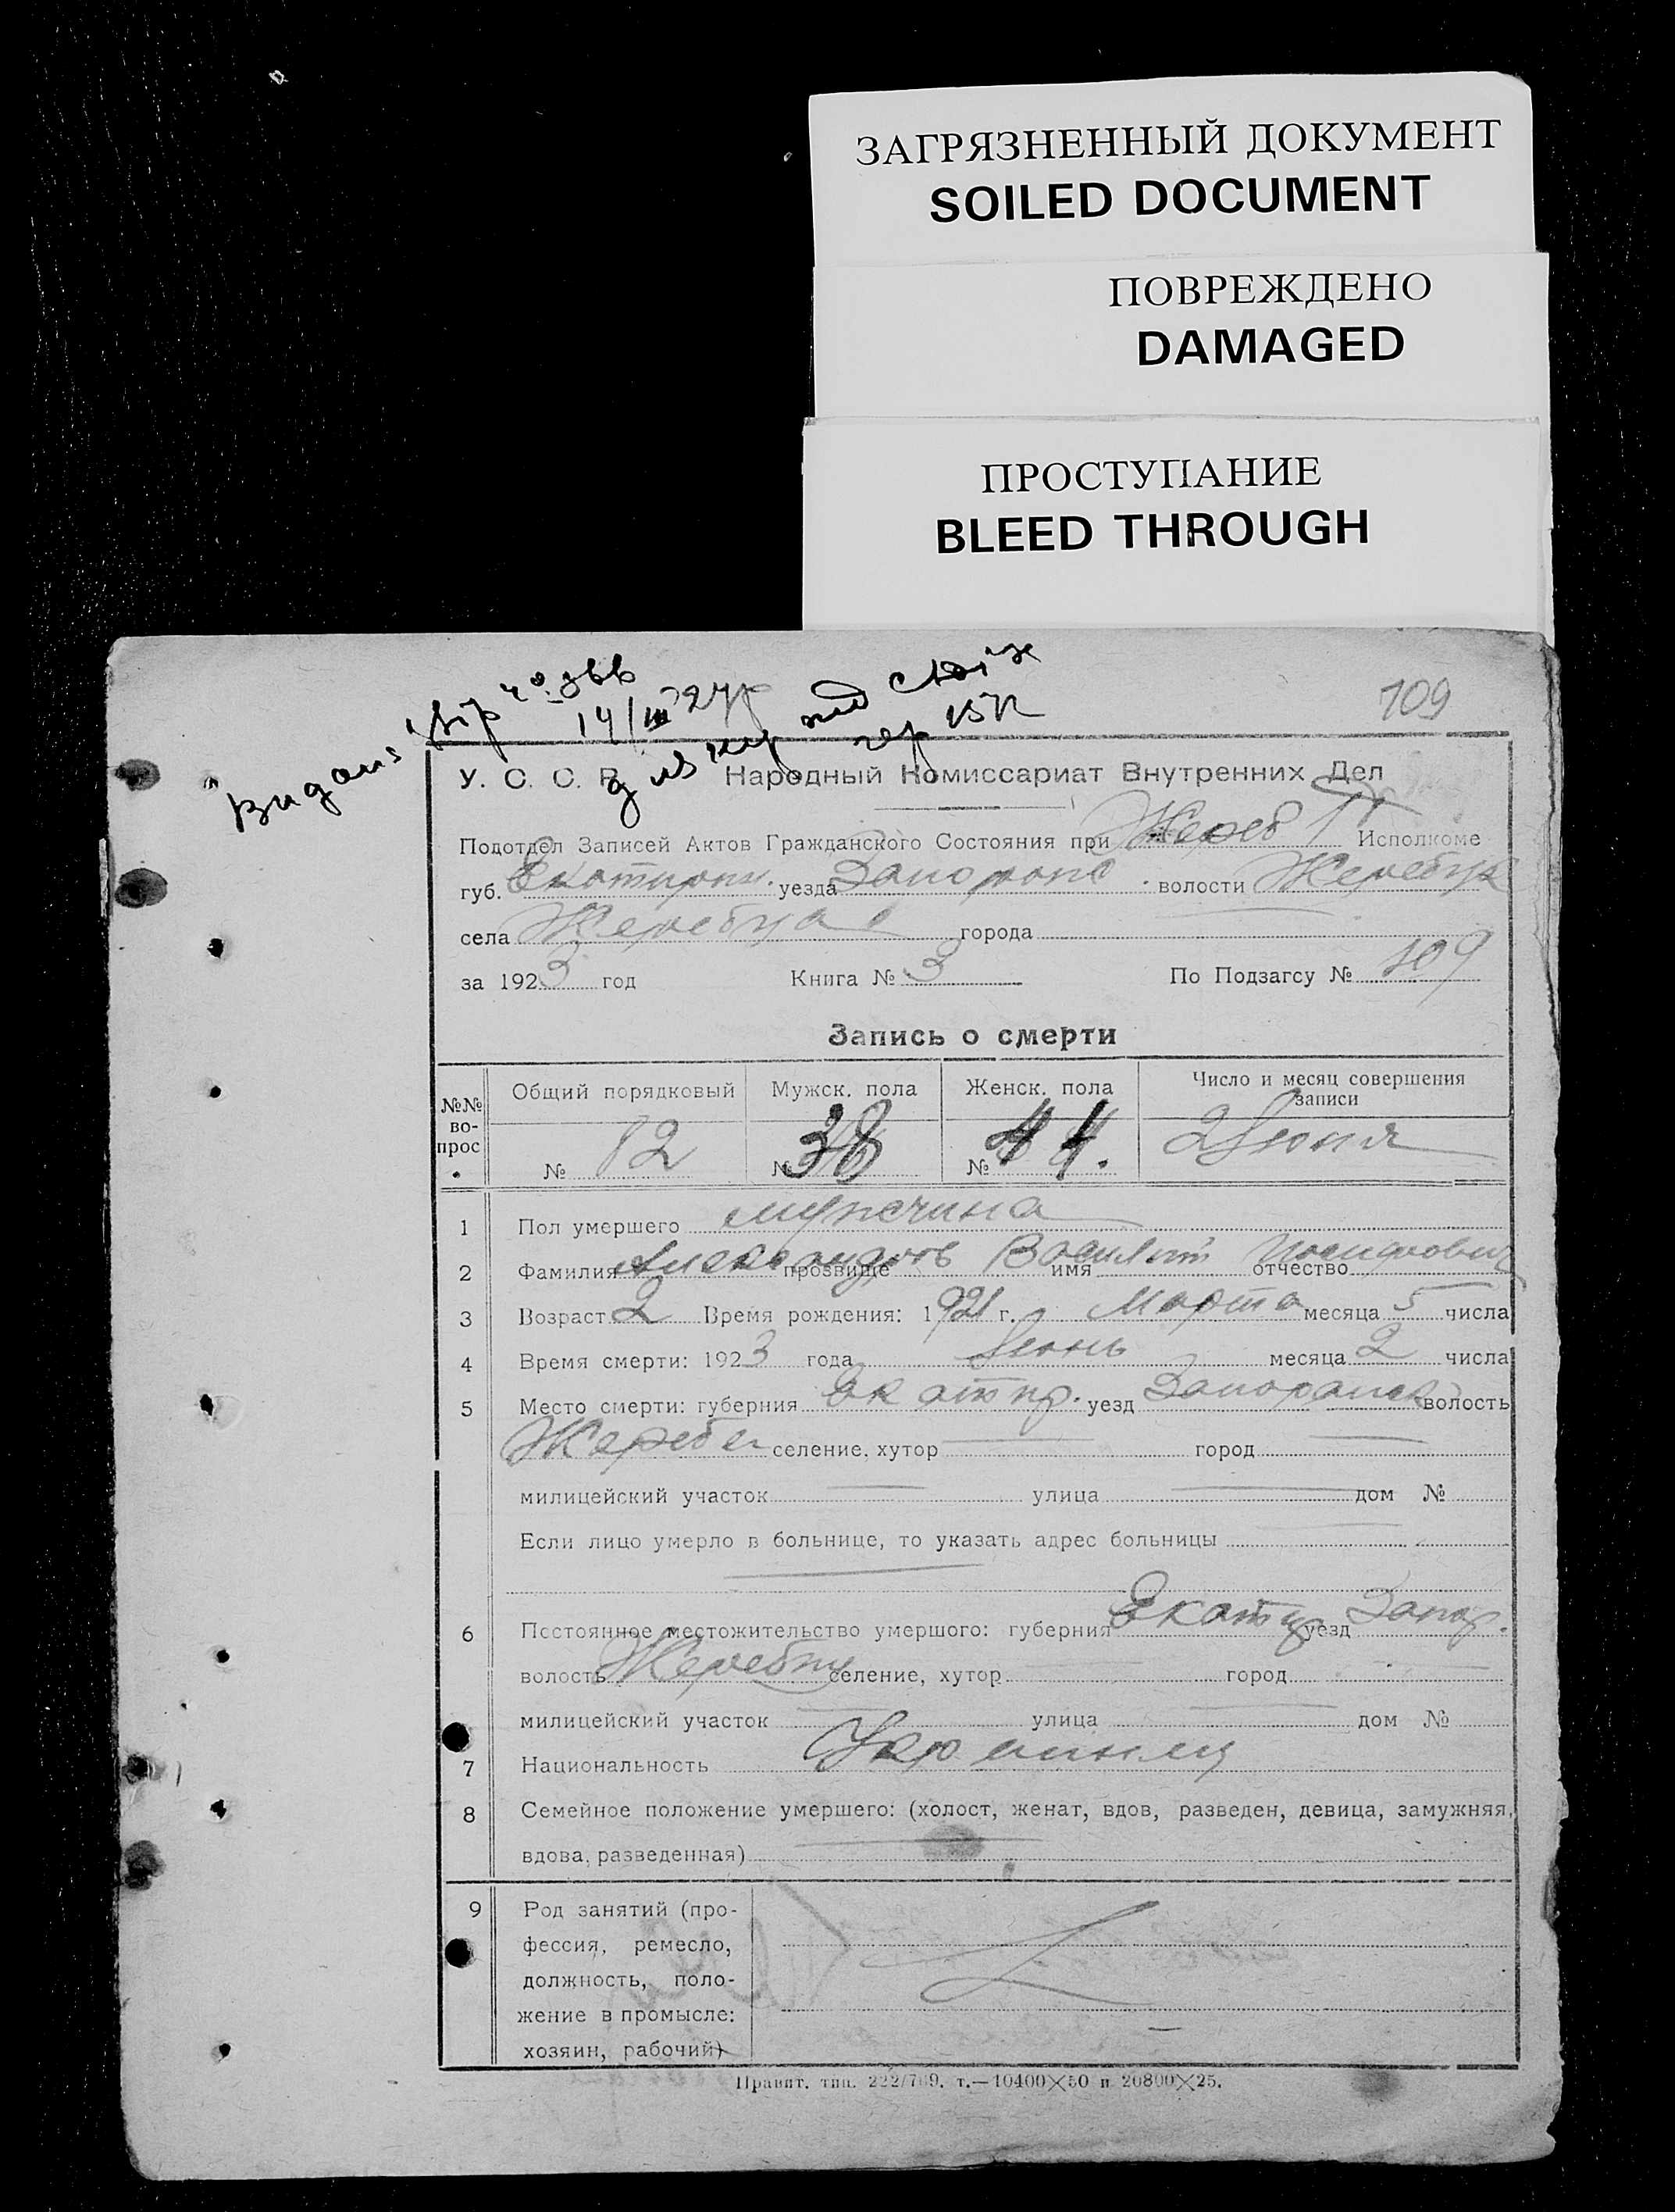 ЗАГРЯЗНЕННЫЙ ДОКУМЕНТ
SOILED DOCUMENT
ПОВРЕЖДЕНО
DAMAGED
ПРОСТУПАНИЕ
BLEED THROUGH
14/III
109
У. С. С. Р. Народный Комиссариат Внутренних Дел
Подотдел Записей Актов Гражданского Состояния при Жереб Исполкоме
губ. Екатирин. уезда волости Жеребця
села города
за 1923 год Книга № 3 По Подзагсу № 109
Запись о смерти
№№ вопрос. Общий порядковый Мужск. пола Женск. пола Число и месяц совершения записи
№ 82 № 38 № 44. 2 Июня
1 Пол умершего мужчина
2 Фамилия Александров прозвище имя Василий отчество Иосифович
3 Возраст 2 Время рождения: 1921 г. Марта месяца 5 числа
4 Время смерти: 1923 года Июнь месяца 2 числа
5 Место смерти: губерния уезд волость
селение, хутор город
милицейский участок улица дом №
Если лицо умерло в больнице, то указать адрес больницы
6 Постоянное местожительство умершого: губерния уезд Запор.
волость селение, хутор город
милицейский участок улица дом №
7 Национальность Украинец
8 Семейное положение умершего: (холост, женат, вдов, разведен, девица, замужняя,
вдова, разведенная)
9 Род занятий (про-
фессия, ремесло,
должность, поло-
жение в промысле:
хозяин, рабочий)
Правит. тип. 222/769. т.—10400×50 и 20800×25.